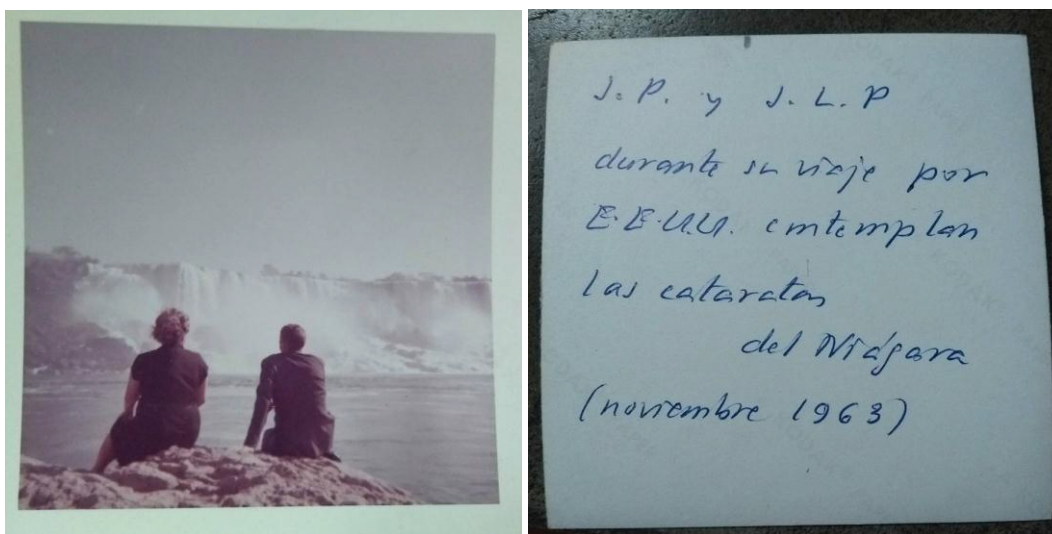 J. P. y J. L. P
durante su viaje por
E.E.U.U. contemplan
las cataratas
del Niágara
(noviembre 1963)